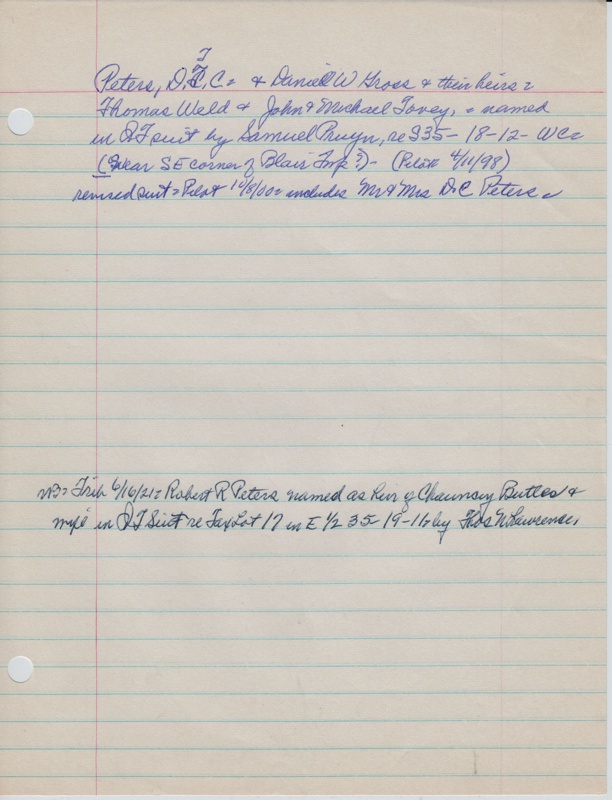 T
Peters, D.T.C. = & Daniel W Gross & their heirs =
Thomas Weld & John & Michael Tovey, = named
in QT suit by Samuel Pruyn, re S35-18-12- WC =
(Near SE corner of Blair Twp?) - (Pilot 4/11/98)
revised suit = Pilot 10/8/00 = includes Mr & Mrs D.C Peters =
NB = Trib 6/16/21 = Robert R Peters named as heir of Chauncey Butler &
wife in QT Suit re Tax Lot 17 in E 1/2 35-19-11 by Thos N Lawrence.